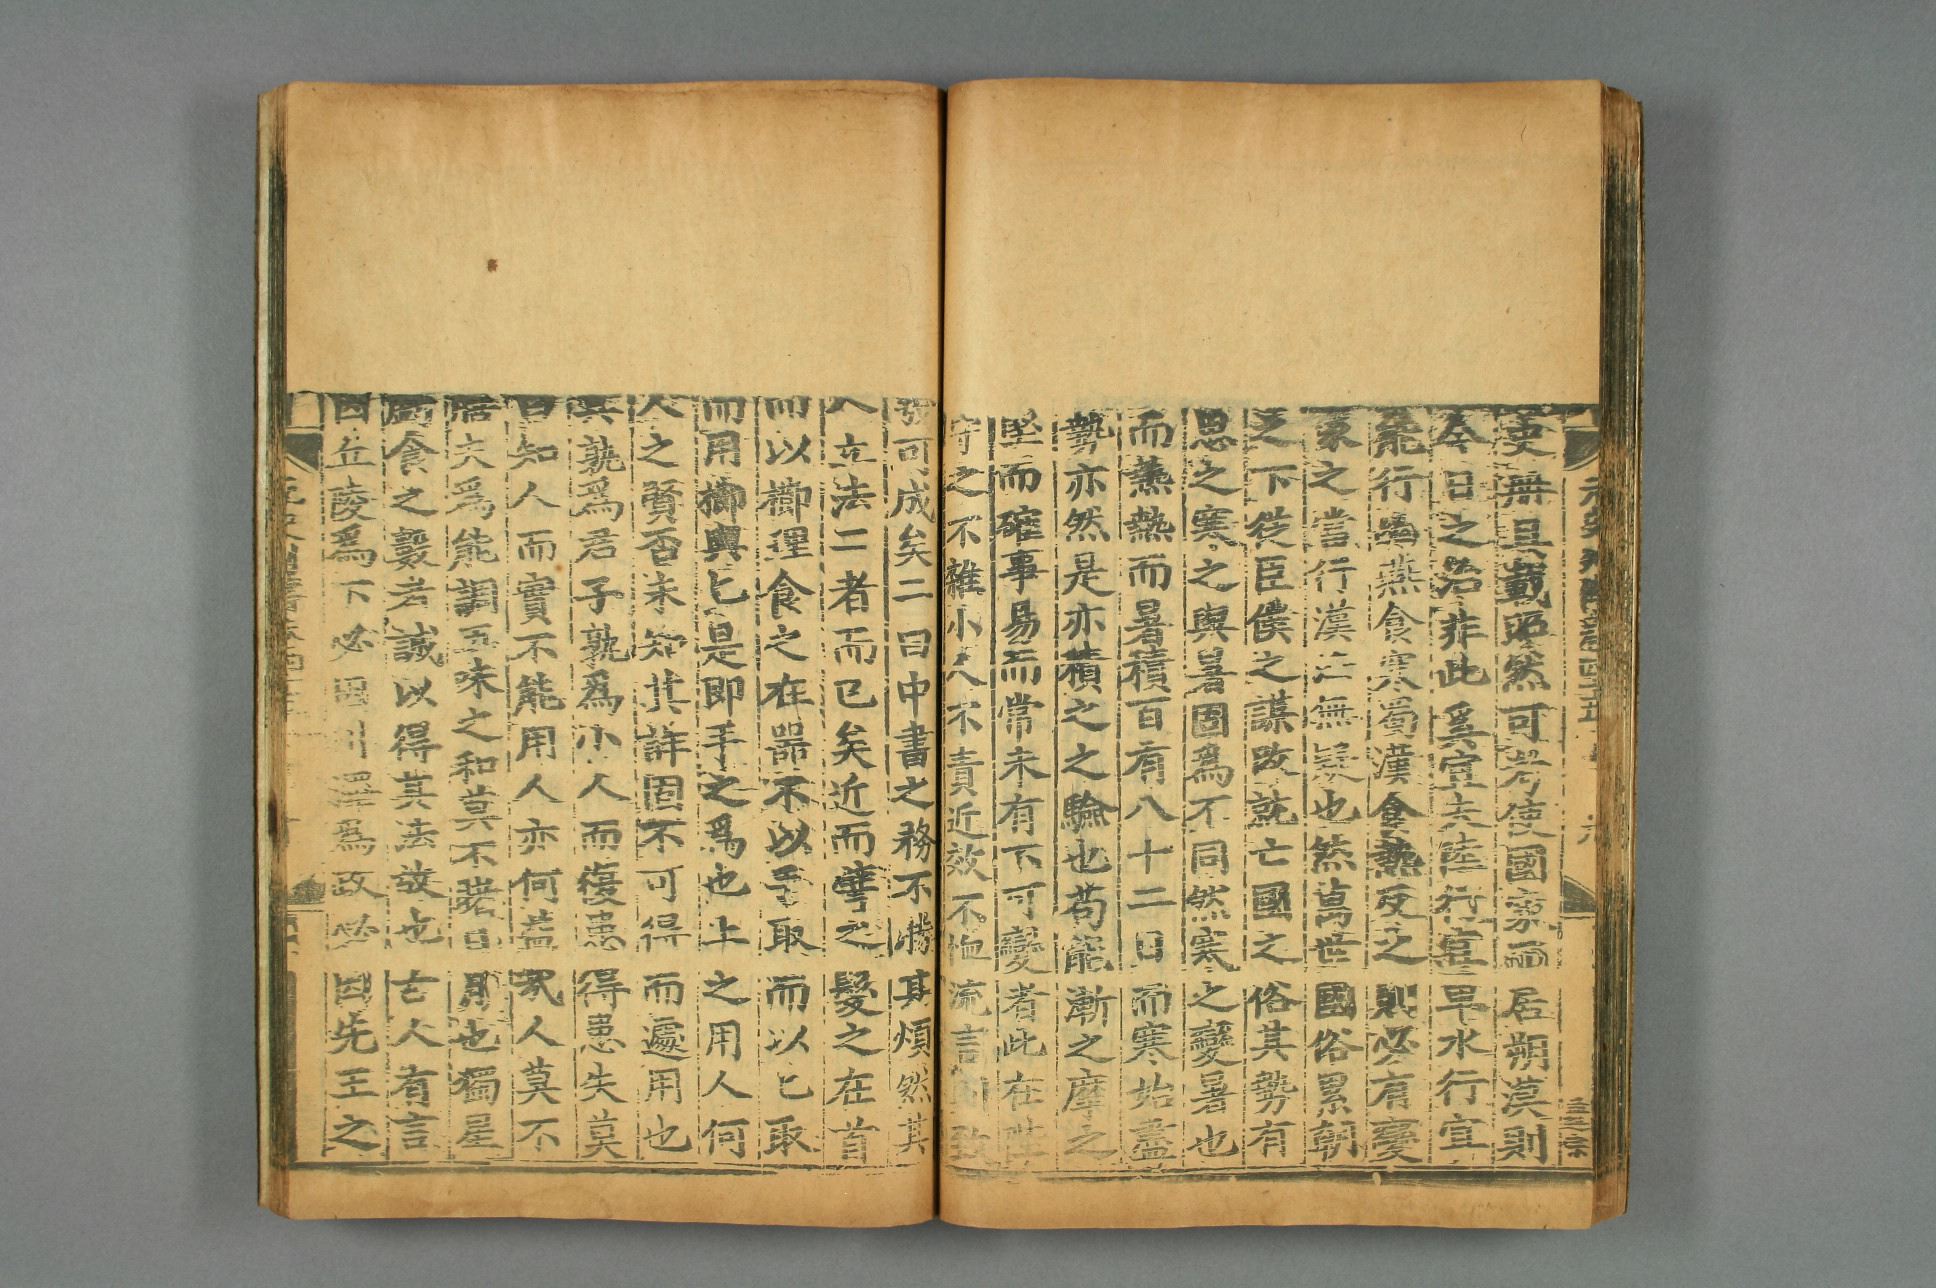 吏無且戴昭然可考使國家而居朔漠則
今日之治非此奚宜夫陸行宜車水行宜
能行幽燕食寒蜀漢食熱反之則必有變
家之當行漢法無疑也然萬世國俗累朝
之下從臣僕之謀改就亡國之俗其勢有
思之寒之與暑固爲不同然寒之變暑也
而熱熱而暑積百有八十二日而寒始盡
勢亦然是亦積之之驗也苟能漸之摩之
堅而確事易而常未有不可變者此在陛
守之不雜小人不責近效不恤流言則致
可成矣二曰中書之務不勝其煩然其
人立法二者而已矣近而譬之髮之在首
而以櫛理食之在器不以手取而以匕取
而用櫛與匕是即手之爲也上之用人何
人之賢否未知其詳固不可得而遽用也
其孰爲君子孰爲小人而復患得患失莫
曰知人而實不能用人亦何益哉人莫不
膳夫爲能調五味之和莫不睹日月也獨星
食之數者誠以得其法故也古人有言
曰丘陵爲下必因川澤爲政必因先王之